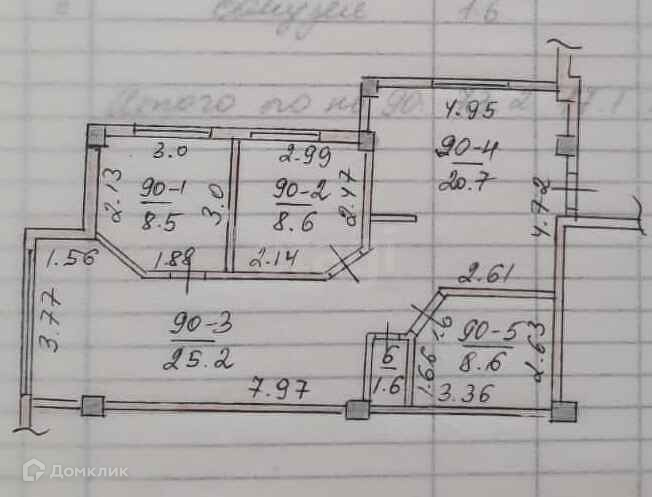 санузел 1.6
Итого по
4.95
90-4
20.7
4.72
3.0
2.13
90-1
8.5
3.0
1.88
2.99
90-2
8.6
2.47
2.14
1.56
3.77
90-3
25.2
7.97
2.61
1.6
90-5
8.6
2.63
1.66
3.36
6
1.6
Домклик